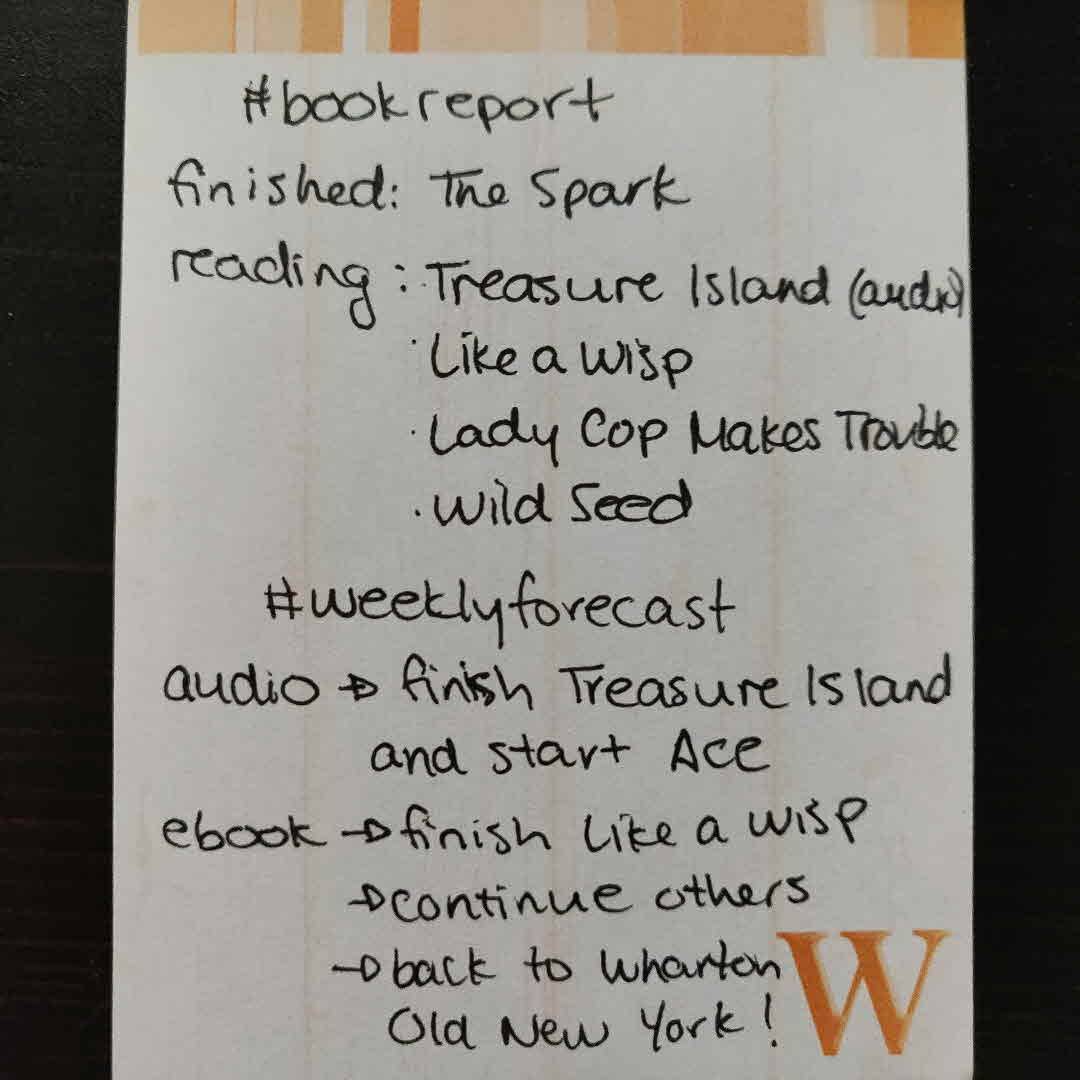 #bookreport
finished: The Spark
reading: · Treasure Island (audio)
· Like a Wisp
· Lady Cop Makes Trouble
· Wild Seed
#weeklyforecast
audio → finish Treasure Island
and start Ace
ebook → finish Like a Wisp
→ continue others
→ back to Wharton
Old New York!
W